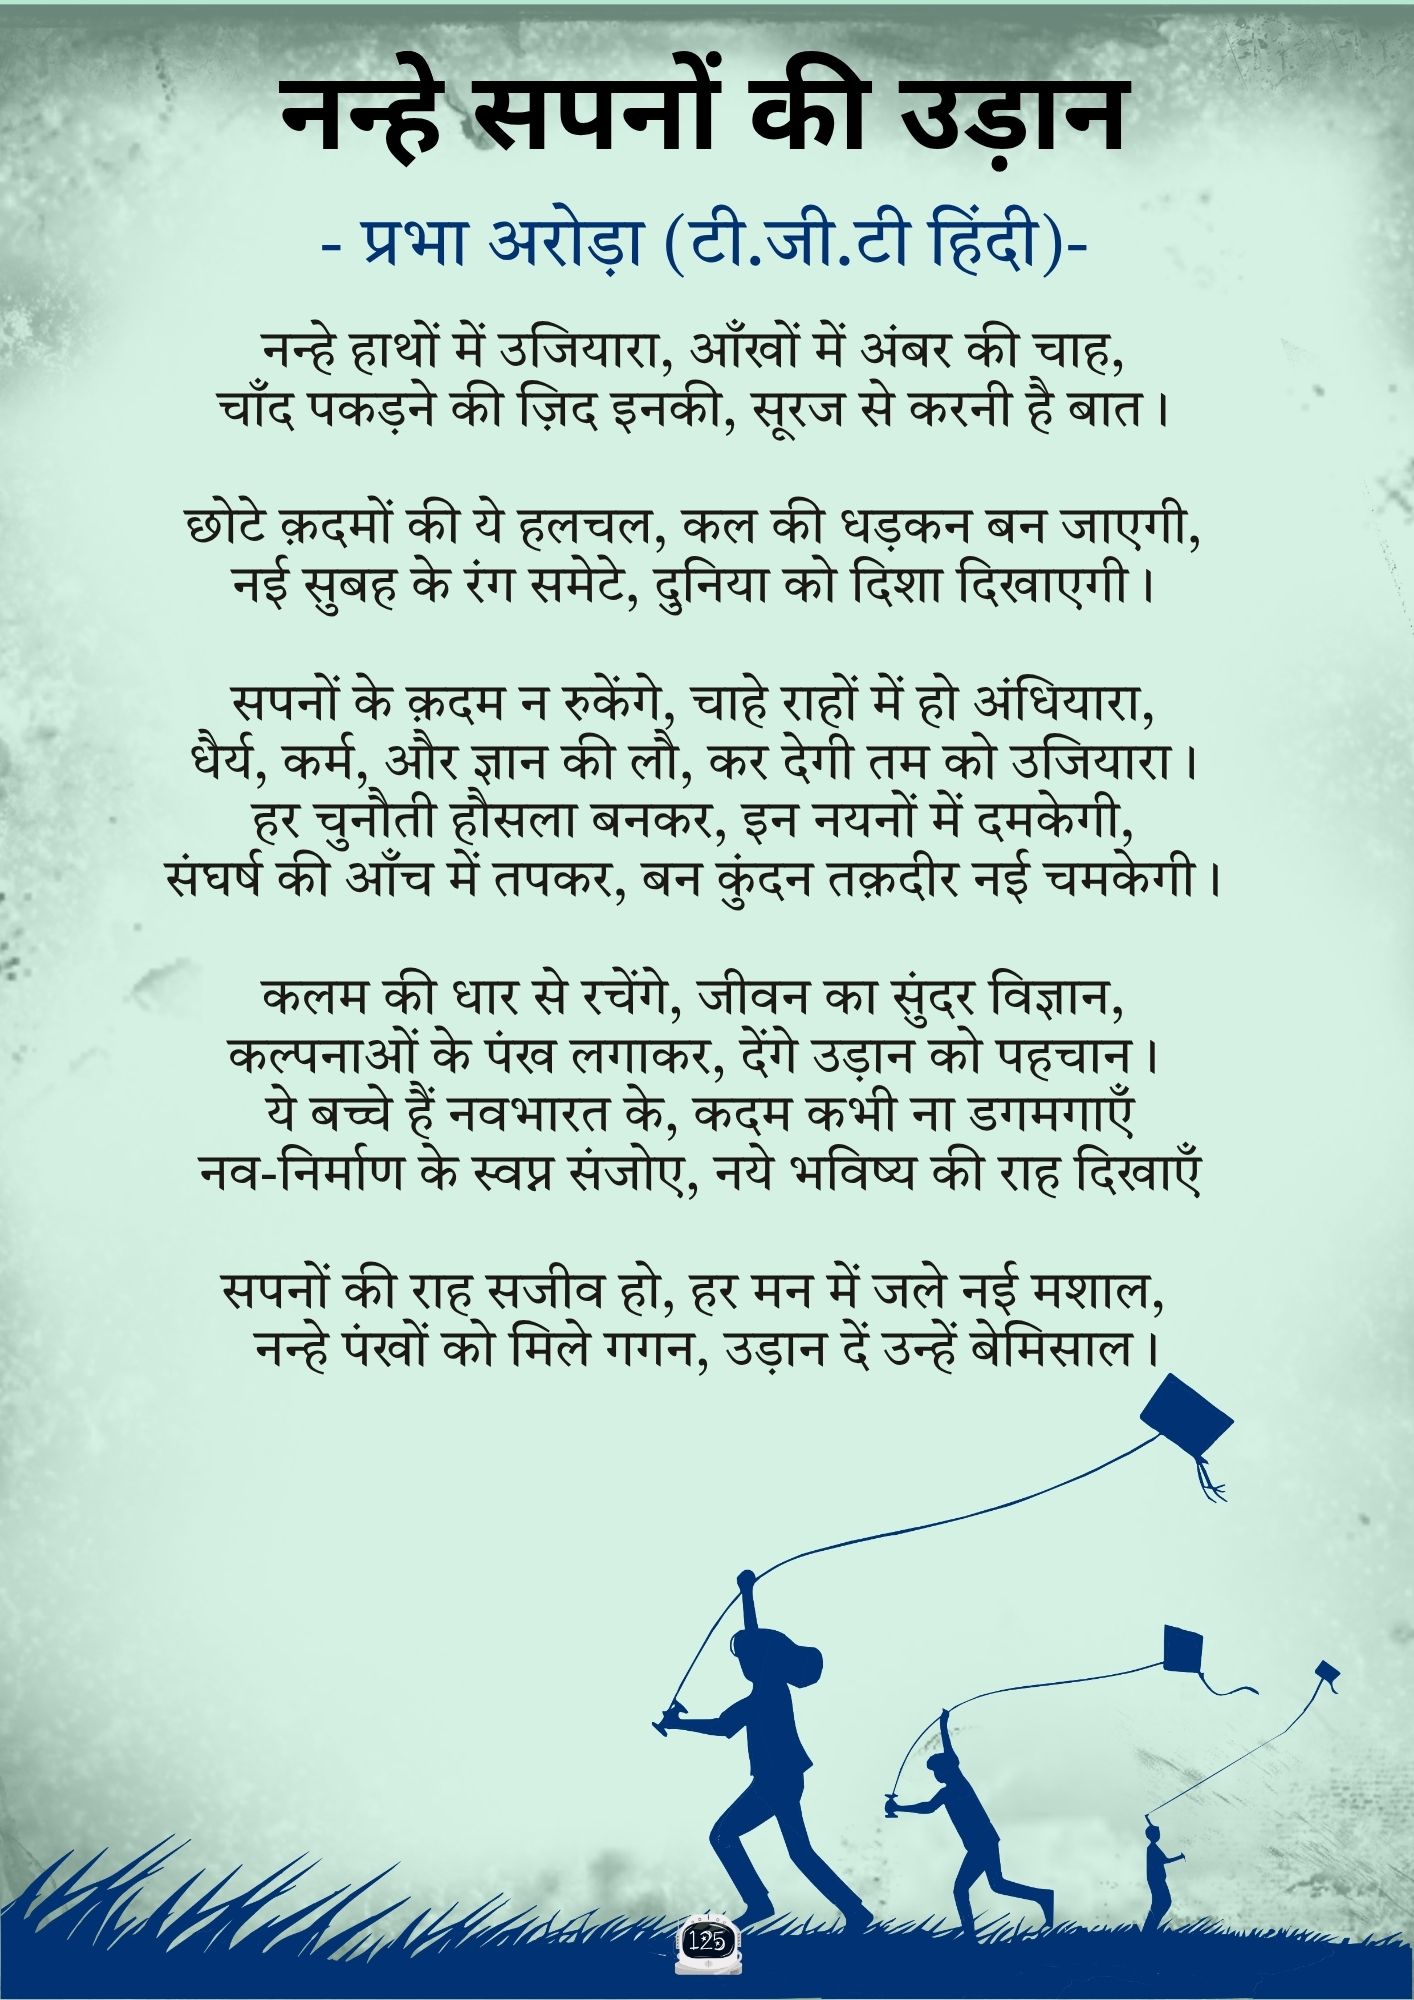 नन्हे सपनों की उड़ान
- प्रभा अरोड़ा (टी.जी.टी हिंदी)-
नन्हे हाथों में उजियारा, आँखों में अंबर की चाह,
चाँद पकड़ने की ज़िद इनकी, सूरज से करनी है बात।
छोटे क़दमों की ये हलचल, कल की धड़कन बन जाएगी,
नई सुबह के रंग समेटे, दुनिया को दिशा दिखाएगी।
सपनों के क़दम न रुकेंगे, चाहे राहों में हो अंधियारा,
धैर्य, कर्म, और ज्ञान की लौ, कर देगी तम को उजियारा।
हर चुनौती हौसला बनकर, इन नयनों में दमकेगी,
संघर्ष की आँच में तपकर, बन कुंदन तक़दीर नई चमकेगी।
कलम की धार से रचेंगे, जीवन का सुंदर विज्ञान,
कल्पनाओं के पंख लगाकर, देंगे उड़ान को पहचान।
ये बच्चे हैं नवभारत के, कदम कभी ना डगमगाएँ
नव-निर्माण के स्वप्न संजोए, नये भविष्य की राह दिखाएँ
सपनों की राह सजीव हो, हर मन में जले नई मशाल,
नन्हे पंखों को मिले गगन, उड़ान दें उन्हें बेमिसाल।
125